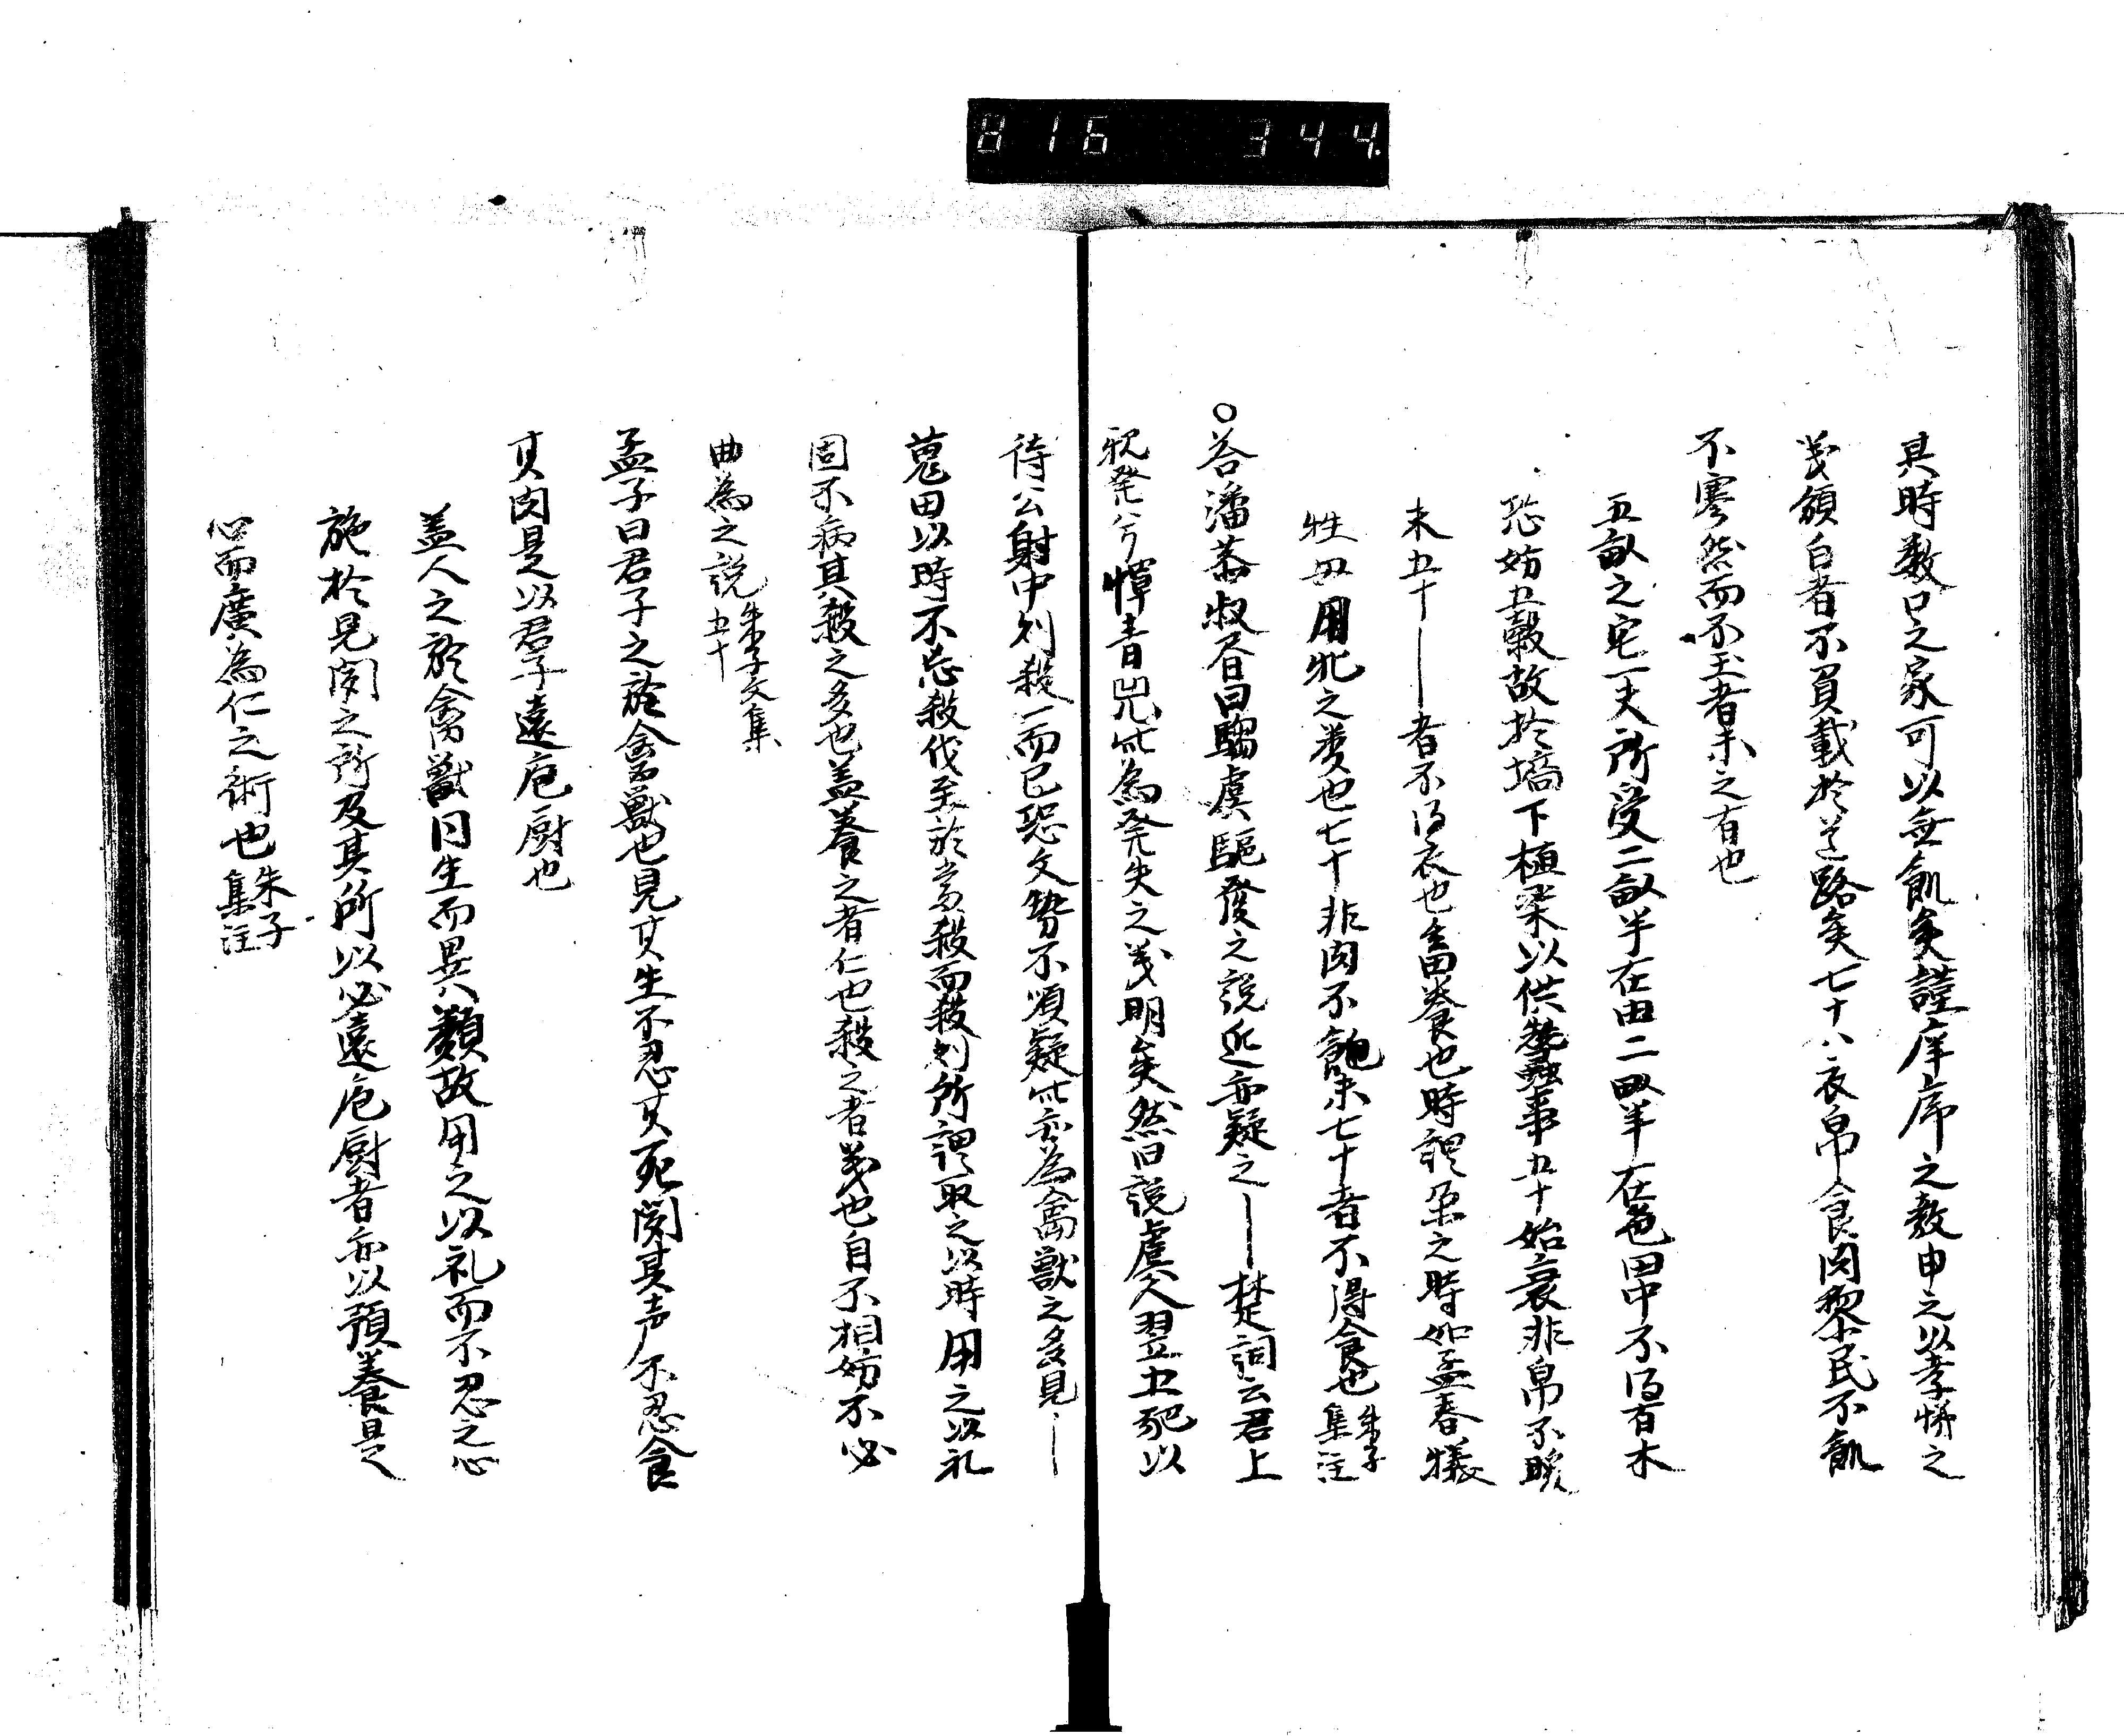 816 344
其時数口之家可以無飢矣謹庠序之教申之以孝悌之
義頒白者不負載於道路矣七十八衣帛食肉黎民不飢
不寒然而不王者未之有也
五畝之宅一夫所受二畝半在田二畝半在邑田中不得有木
恐妨五穀故於墻下植桑以供蠶事五十始衰非帛不煖
未五十―者不得衣也畜養也時謂孕之時如孟春犠
牲毋用牝之類也七十非肉不飽未七十者不得食也朱子
集注
○答潘恭叔書曰騶虞騶發之説近亦疑之―楚詞云君上
親発兮憚青兕此為発矢之義明矣然旧説虞人翌五豝以
待公射中則殺一而已恐文勢不順疑此亦為禽獸之多見―
蒐田以時不忘殺伐至於当殺而殺則所謂取之以時用之以礼
固不病其殺之多也盖養之者仁也殺之者義也自不相妨不必
曲為之説朱子文集
五十
孟子曰君子之於禽獸也見其生不忍其死聞其声不忍食
其肉是以君子遠庖厨也
盖人之於禽獸同生而異類故用之以礼而不忍之心
施於見聞之所及其所以必遠庖厨者亦以預養是
心而廣為仁之術也朱子
集注